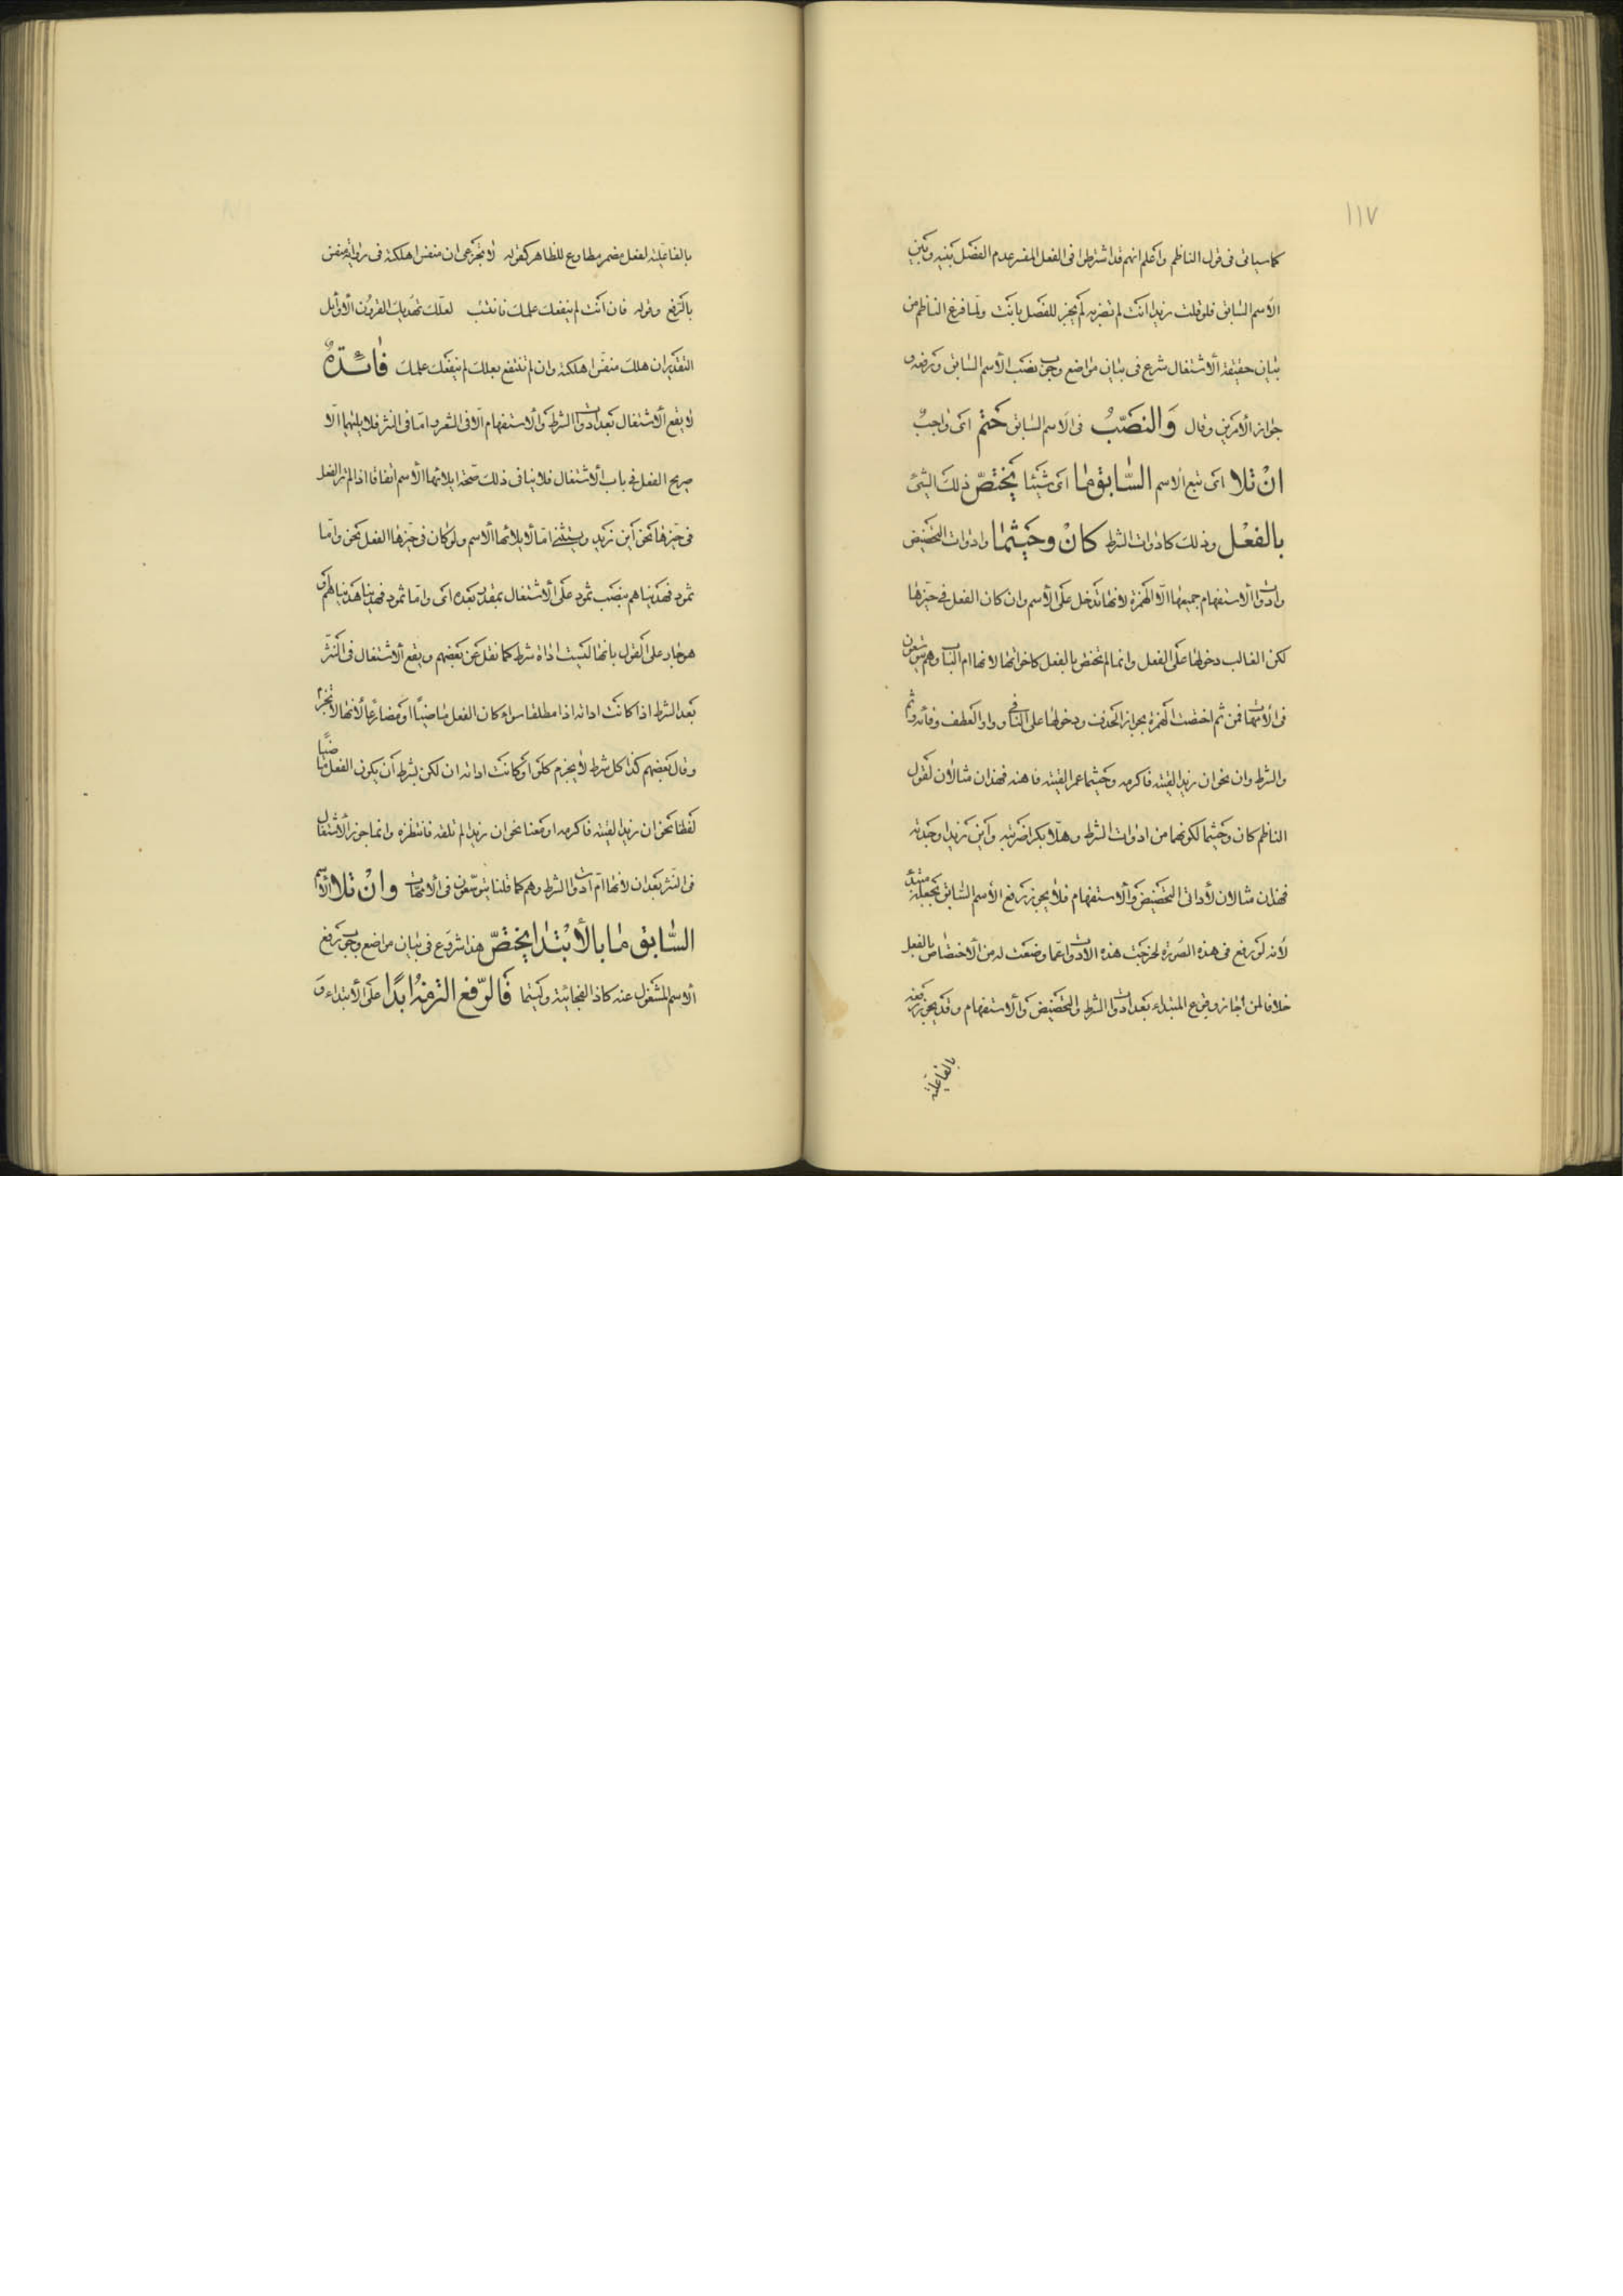 ١١٧
كما سياتى فى قول الناظم واعلم انهم قد اشترطوا فى الفعل المفسر عدم الفصل بينه وبين
الاسم السابق فلو قلت زيدا انت تضربه لم يجز للفصل بانت ولما فرغ الناظم من
بيان حقيقة الاشتغال شرع فى بيان مواضع وجوب نصب الاسم السابق ورفعه و
جواز الأمرين وقال وَالنصَبُ فى الاسم السابق حَتْم اى واجبٌ
انْ تلا اى تبع الاسم السَّابق مَا اى شيئا يَختصّ ذلك الشئ
بالفعْل وذلك كادوات الشرط كانْ وحَيثما وادوات التحضيض
وادوات الاستفهام جميعها الّا الهمزة لانها تدخل على الأسم وان كان الفعل فى حيّزها
لكن الغالب دخولها على الفعل وانما لم تختص بالفعل كاخواتها لانها ام الباب وهم يتوسعون
فى الأمهات فمن ثم اختصت الهمزة بجواز الحذف ودخولها على النافى وواو العطف وفائه وثم
والشرط وان نحو ان زيدا لقيته فاكرمه وحيثما عمرا لقيته فاهنه فهذان مثالان لقول
الناظم كان وحيثما لكونهما من ادوات الشرط وهلّا بكرا ضربته واين زيدا وجدته
فهذان مثالان لأداتى التحضيض والاستفهام فلا يجوز رفع الأسم السّابق بجعله مبتدأ
لأنه لو رفع فى هذه الصورة لخرجت هذه الأدوات عما وضعت له من الاختصاص بالفعل
خلافا لمن اجاز وقوع المبتداء بعد ادوات الشرط والتحضيض والاستفهام وقد يجوز رفعه
بالفاعلية
بالفاعليّة لفعل مضمر مطاوع للظاهر كقوله لا تجزعى ان منفس اهلكته فى رواية منفس
بالرفع وقوله فان انت لم ينفعك علمك فانتسب لعلك تهديك القرون الأوائل
التقدير ان هلك منفس اهلكته وان لم تنتفع بعلمك لم ينفعك علمك فائدةٌ
لا يقع الاشتغال بعد ادوات الشرط والاستفهام الّا فى الشعر واما فى النثر فلا يليهما الّا
صريح الفعل فى باب الاشتغال فلا ينافى ذلك صحة ايلائها الأسم اتفاقا اذا لم تر الفعل
فى حيّزها نحو اين زيد ويستثنى امّا لايلائها الأسم ولو كان فى حيّزها الفعل نحو وامّا
ثمود فهديناهم بنصب ثمود على الاشتغال بمقدر بعده اى واما ثمود فهدينا هديناهم و
هو جار على القول بانها ليست اداة شرط كما نقل عن بعضهم ويقع الاشتغال فى النثر
بعد الشرط اذا كانت اداته اذا مطلقا سواء كان الفعل ماضيًا او مضارعًا لأنها لا تجزم
وقال بعضهم كذا كل شرط لا يجزم كلو او كانت اداته ان لكن بشرط أن يكون الفعل ماضيًا
لفظا نحو ان زيدا لقيته فاكرمه او معنا نحو ان زيدا لم تلقه فانتظره وانما جوز الاشتغال
فى النثر بعد ان لأنها امّ ادوات الشرط وهم كما قلنا يتوسّعون فى الأمهات وانْ تلا الأسم
السَّابق مَا بالأبْتدا يختصّ هذا شروع فى بيان مواضع وجوب رفع
الأسم المشغول عنه كاذا الفجائية وليتما فَالرّفع التزمْهُ ابدًا على الابتداء و